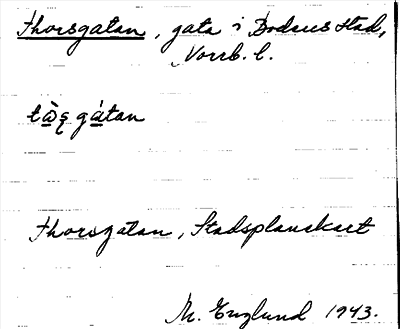 Thorsgatan, gata i Bodens stad,
Norrb. l.
gátan
Thorsgatan, Stadsplanekart
M. Englund 1943.